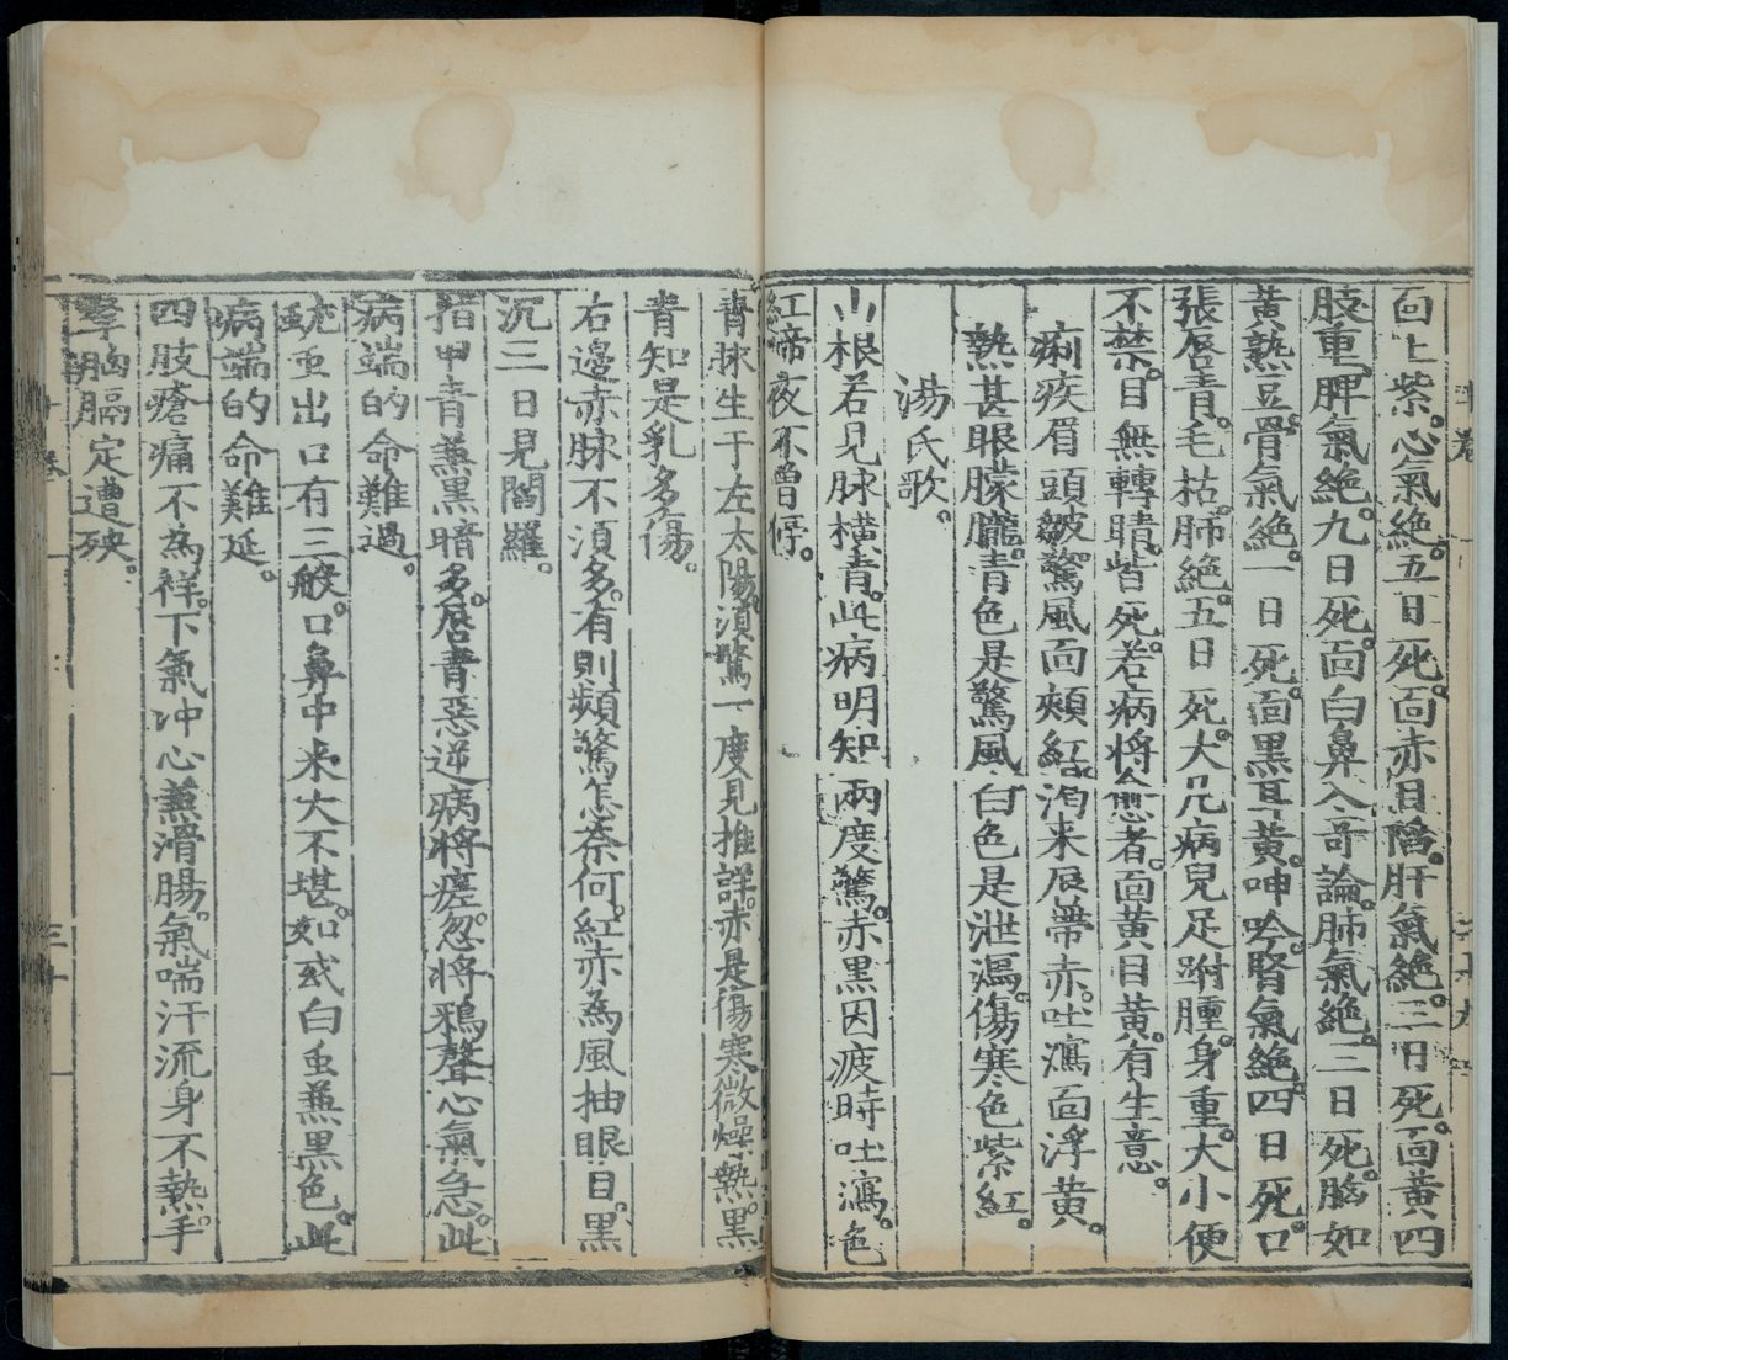 面上紫。心氣絶。五日死。面赤目陷。肝氣絶。三日死。面黄四
肢重。脾氣絶。九日死。面白鼻入奇論。肺氣絶。三日死。胸如
黄熟豆。骨氣絶。一日死。面黒耳黄。呻吟。腎氣絶。四日死。口
張唇青。毛枯。肺絶。五日死。大凡病兒足跗腫。身重。大小便
不禁。目無轉睛。皆死。若病将愈者。面黄目黄。有生意。
痢疾眉頭皺。驚風面頰紅。渴来唇帶赤。吐瀉面浮黄。
熱甚眼朦朧。青色是驚風。白色是泄瀉。傷寒色紫紅。
湯氏歌。
山根若見脉横青。此病明知兩度驚。赤黒因疲時吐瀉。色
紅啼夜不曾停。
青脉生于左太陽。須驚一度見推詳。赤是傷寒微燥熱。黒
青知是乳多傷。
右邊赤脉不須多。有則頻驚怎奈何。紅赤為風抽眼目。黒
沉三日見閻羅。
指甲青兼黒暗多。唇青惡逆病将瘥。忽将鴉聲心氣急。此
病端的命難過。
蚘虫出口有三般。口鼻中来大不堪。如或白虫兼黒色。此
病端的命難延。
四肢瘡痛不為祥。下氣冲心兼滑腸。氣喘汗流身不熱。手
拏胸膈定遭殃。